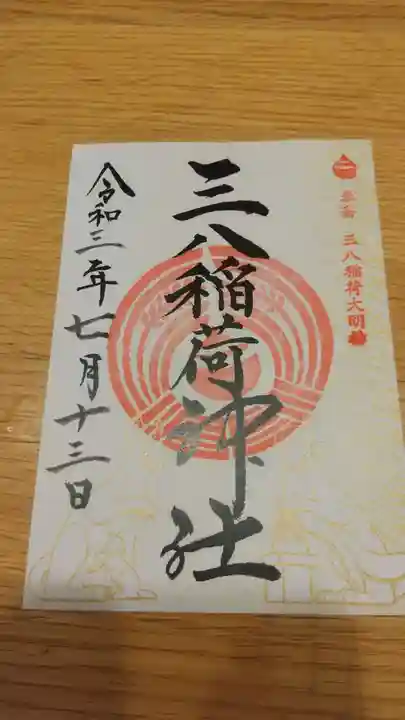 奉拝 三八稲荷大明神
三八稲荷神社
令和三年七月十三日